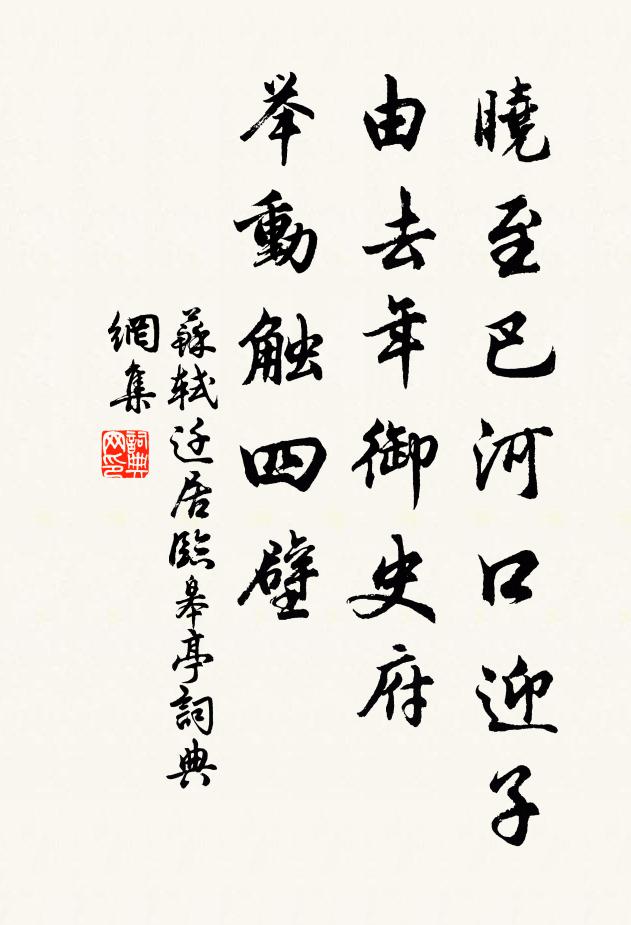 曉至巴河口迎子
由去年御史府
举動触四壁
蘇軾迁居臨皋亭詞典
網集
詞典
网印